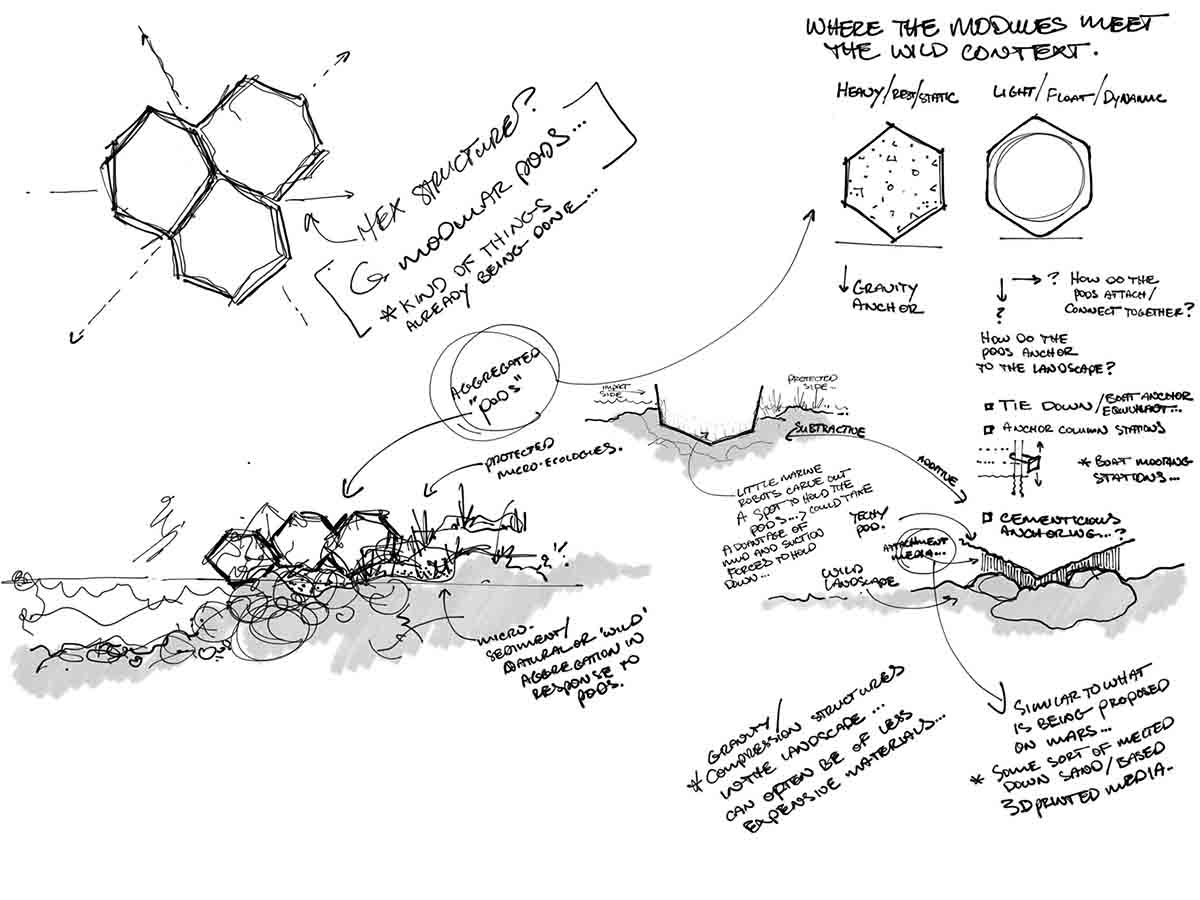 WHERE THE MODULES MEET
THE WILD CONTEXT.
HEAVY/REST/STATIC
LIGHT/FLOAT/DYNAMIC
HEX STRUCTURE?
MODULAR PODS...
* KIND OF THINGS
ALREADY BEING DONE...
GRAVITY
ANCHOR
? HOW DO THE
PODS ATTACH/
CONNECT TOGETHER?
?
HOW DO THE
PODS ANCHOR
TO THE LANDSCAPE?
TIE DOWN/BOAT ANCHOR
EQUIVALENT...
ANCHOR COLUMN STATIONS
* BOAT MOORING
STATIONS...
CEMENTICIOUS
ANCHORING...?
AGGREGATED
"PODS"
IMPACT
SIDE
PROTECTED
SIDE
SUBTRACTIVE
ADDITIVE
PROTECTED
MICRO-ECOLOGIES.
LITTLE MARINE
ROBOTS CARVE OUT
A SPOT TO HOLD THE
PODS...> COULD TAKE
ADVANTAGE OF
MUD AND SUCTION
FORCES TO HOLD
DOWN...
TECHY
POD.
ATTACHMENT
MEDIA...
WILD
LANDSCAPE
MICRO-
SEDIMENT/
NATURAL OR 'WILD'
AGGREGATION IN
RESPONSE TO
PODS.
GRAVITY/
* COMPRESSION STRUCTURES
IN THE LANDSCAPE...
CAN OFTEN BE OF LESS
EXPENSIVE MATERIALS...
SIMILAR TO WHAT
IS BEING PROPOSED
ON MARS...
* SOME SORT OF MELTED
DOWN SAND/BASED
3D PRINTED MEDIA.